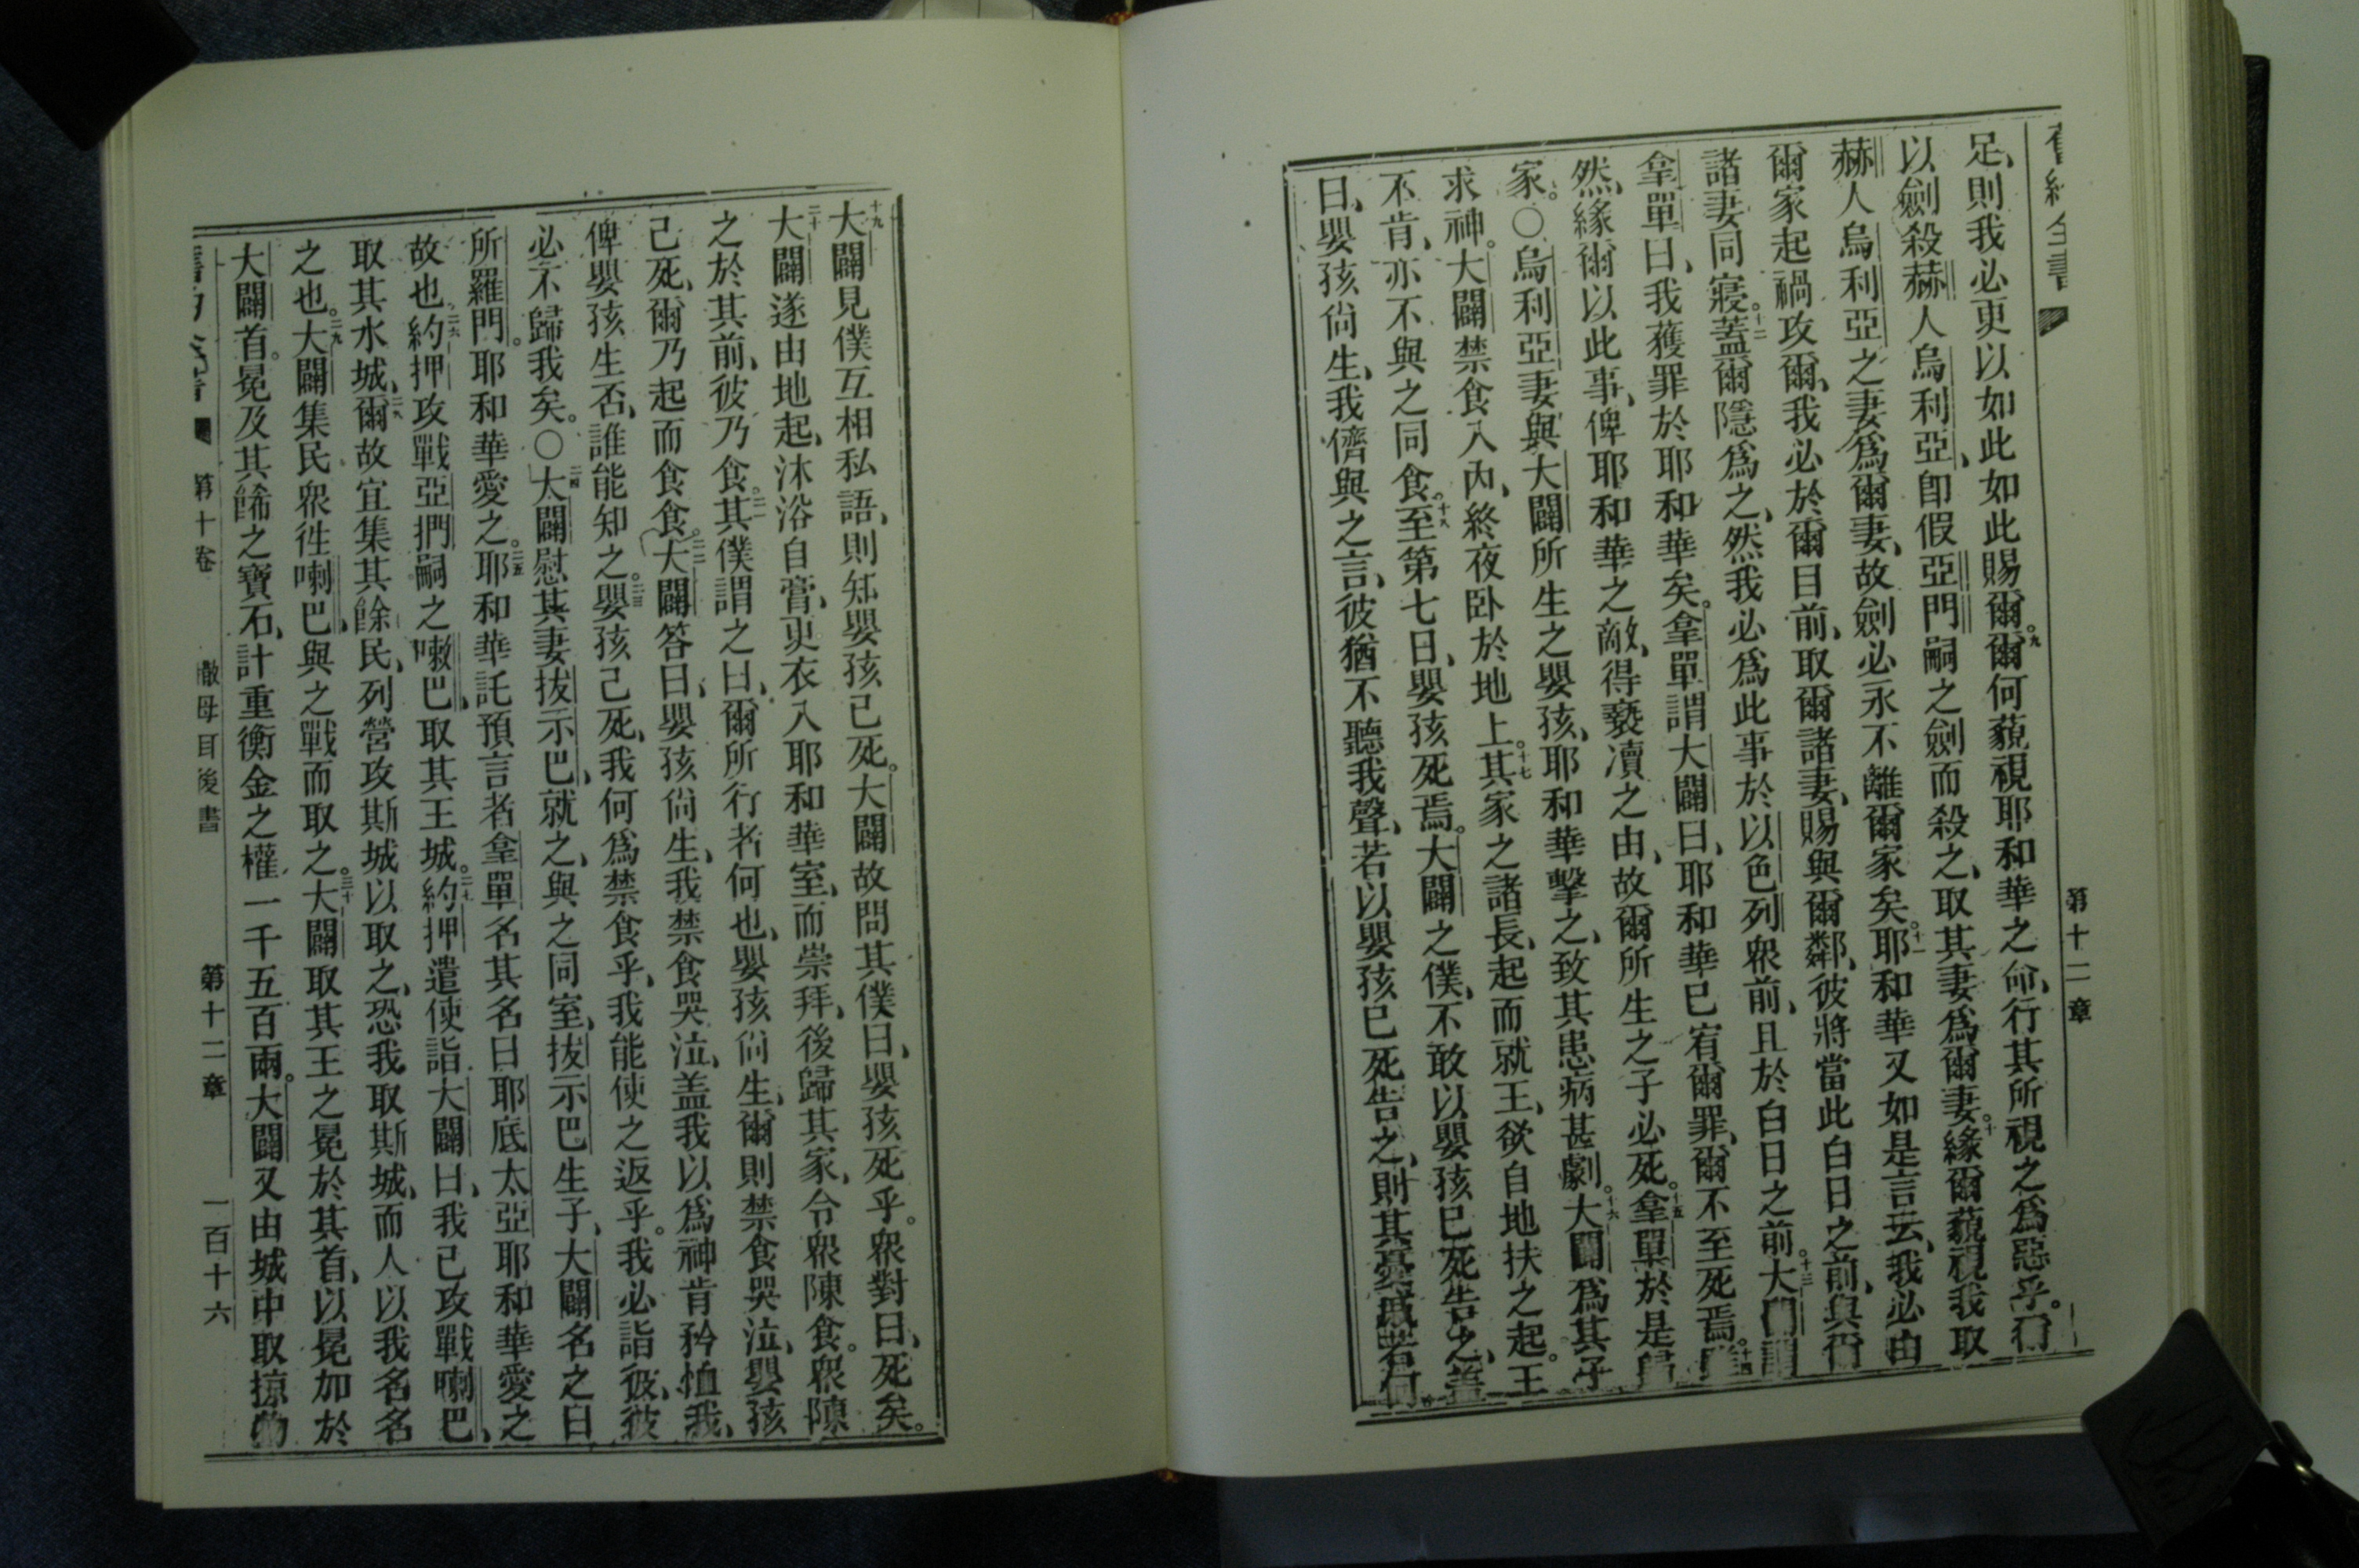 舊約全書 第十二章
足、則我必更以如此如此賜爾。九爾何藐視耶和華之命、行其所視之爲惡乎。爾
以劍殺赫人烏利亞、卽假亞門嗣之劍而殺之、取其妻爲爾妻。十緣爾藐視我取
赫人烏利亞之妻爲爾妻、故劍必永不離爾家矣。十一耶和華又如是言云、我必由
爾家起禍攻爾、我必於爾目前、取爾諸妻、賜與爾鄰、彼將當此白日之前、與爾
諸妻同寢。十二蓋爾隱爲之、然我必爲此事於以色列衆前、且於白日之前。十三大闢謂
拿單曰、我獲罪於耶和華矣。拿單謂大闢曰、耶和華已宥爾罪、爾不至死焉。十四
然、緣爾以此事、俾耶和華之敵、得褻瀆之由、故爾所生之子必死。十五拿單於是歸
家。〇烏利亞妻與大闢所生之嬰孩、耶和華擊之、致其患病甚劇。十六大闢爲其子
求神。大闢禁食入內、終夜臥於地上。十七其家之諸長、起而就王、欲自地扶之起。王
不肯、亦不與之同食。十八至第七日、嬰孩死焉。大闢之僕、不敢以嬰孩已死告之、蓋
曰、嬰孩尙生、我儕與之言、彼猶不聽我聲、若以嬰孩已死告之、則其憂戚若何。
十九大闢見僕互相私語、則知嬰孩已死。大闢故問其僕曰、嬰孩死乎。衆對曰、死矣。
二十大闢遂由地起、沐浴自膏、更衣入耶和華室、而崇拜、後歸其家、令衆陳食。衆陳
之於其前、彼乃食。二一其僕謂之曰、爾所行者何也、嬰孩尙生、爾則禁食哭泣、嬰孩
已死、爾乃起而食食。二二大闢答曰、嬰孩尙生、我禁食哭泣、蓋我以爲神肯矜恤我、
俾嬰孩生否、誰能知之。二三嬰孩已死、我何爲禁食乎、我能使之返乎。我必詣彼、彼
必不歸我矣。〇二四大闢慰其妻拔示巴、就之、與之同室、拔示巴生子、大闢名之曰
所羅門。耶和華愛之。二五耶和華託預言者拿單名其名曰耶底太亞、耶和華愛之
故也。二六約押攻戰亞捫嗣之喇巴、取其王城。二七約押遣使詣大闢曰、我已攻戰喇巴、
取其水城、二八爾故宜集其餘民、列營攻斯城以取之、恐我取斯城、而人以我名名
之也。二九大闢集民衆徃喇巴、與之戰而取之。三十大闢取其王之冕於其首、以冕加於
大闢首。冕及其餙之寶石、計重衡金之權一千五百兩。大闢又由城中取掠物
舊約全書 第十卷 撒母耳後書 第十二章 一百十六